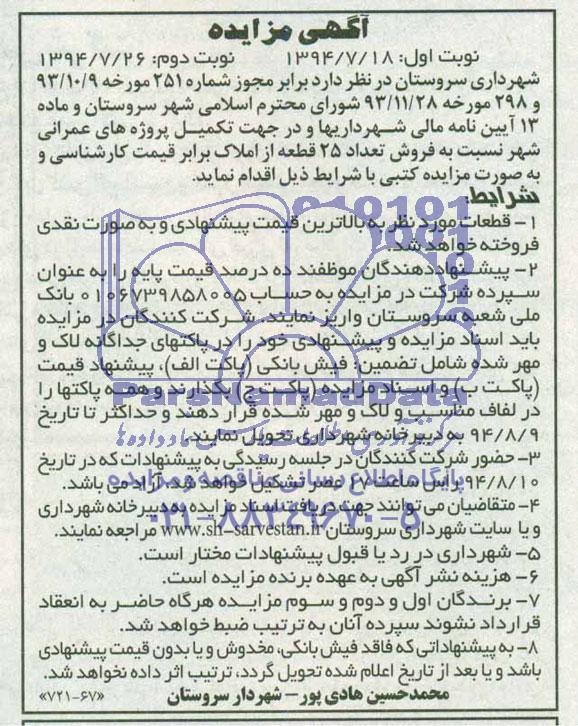 آگهی مزایده
نوبت اول: ۱۳۹۴/۷/۱۸ نوبت دوم: ۱۳۹۴/۷/۲۶
شهرداری سروستان در نظر دارد برابر مجوز شماره ۲۵۱ مورخه ۹۳/۱۰/۹
و ۲۹۸ مورخه ۹۳/۱۱/۲۸ شورای محترم اسلامی شهر سروستان و ماده
۱۳ آیین نامه مالی شهرداریها و در جهت تکمیل پروژه های عمرانی
شهر نسبت به فروش تعداد ۲۵ قطعه از املاک برابر قیمت کارشناسی و
به صورت مزایده کتبی با شرایط ذیل اقدام نماید.
شرایط:
۱- قطعات مورد نظر به بالاترین قیمت پیشنهادی و به صورت نقدی
فروخته خواهد شد.
۲- پیشنهاددهندگان موظفند ده درصد قیمت پایه را به عنوان
سپرده شرکت در مزایده به حساب ۰۱۰۶۷۳۹۸۵۸۰۰۵ بانک
ملی شعبه سروستان واریز نمایند. شرکت کنندگان در مزایده
باید اسناد مزایده و پیشنهادی خود را در پاکتهای جداگانه لاک و
مهر شده شامل تضمین: فیش بانکی (پاکت الف)، پیشنهاد قیمت
(پاکت ب) و اسناد مزایده (پاکت ج) بگذارند و همه پاکتها را
در لفاف مناسب و لاک و مهر شده قرار دهند و حداکثر تا تاریخ
۹۴/۸/۹ به دبیرخانه شهرداری تحویل نمایند.
۳- حضور شرکت کنندگان در جلسه رسیدگی به پیشنهادات که در تاریخ
۹۴/۸/۱۰ راس ساعت ۱۷ عصر تشکیل خواهد شد، آزاد می باشد.
۴- متقاضیان می توانند جهت دریافت اسناد مزایده به دبیرخانه شهرداری
و یا سایت شهرداری سروستان www.sh-sarvestan.ir مراجعه نمایند.
۵- شهرداری در رد یا قبول پیشنهادات مختار است.
۶- هزینه نشر آگهی به عهده برنده مزایده است.
۷- برندگان اول و دوم و سوم مزایده هرگاه حاضر به انعقاد
قرارداد نشوند سپرده آنان به ترتیب ضبط خواهد شد.
۸- به پیشنهاداتی که فاقد فیش بانکی، مخدوش و یا بدون قیمت پیشنهادی
باشد و یا بعد از تاریخ اعلام شده تحویل گردد، ترتیب اثر داده نخواهد شد.
محمدحسین هادی پور - شهردار سروستان «۷۲۱-۶۷»
ParsNamadData
پایگاه اطلاع رسانی مناقصه و مزایده
۰۲۱-۸۸۳۴۹۶۷۰-۵